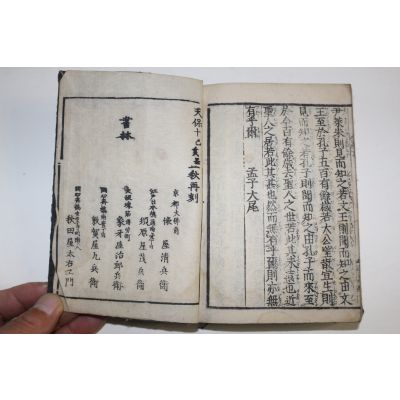 尹萊朱則見而知之若文王則聞而知之由文
王至於孔子五百有餘歲若太公望散宜生則
見而知之若孔子則聞而知之由孔子而來至
於今百有餘歲去聖人之世若此其未遠也近
聖人之居若此其甚也然而無有乎爾則亦無
有乎爾
孟子大尾
天保十己亥 秋再刻
書林
俵屋清兵衛
須原屋茂兵衛
象牙屋治郎兵衛
敦賀屋九兵衛
秋田屋太右エ門